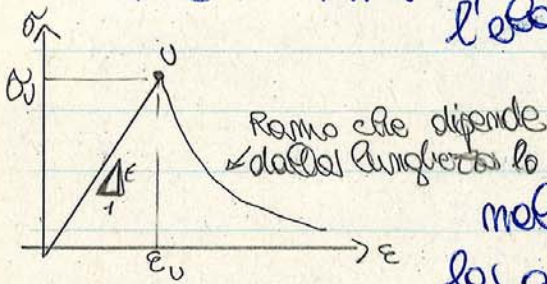 σ
l'e
σᵤ
U
Ramo che dipende
dalla lunghezza lo
E
1
εᵤ
ε